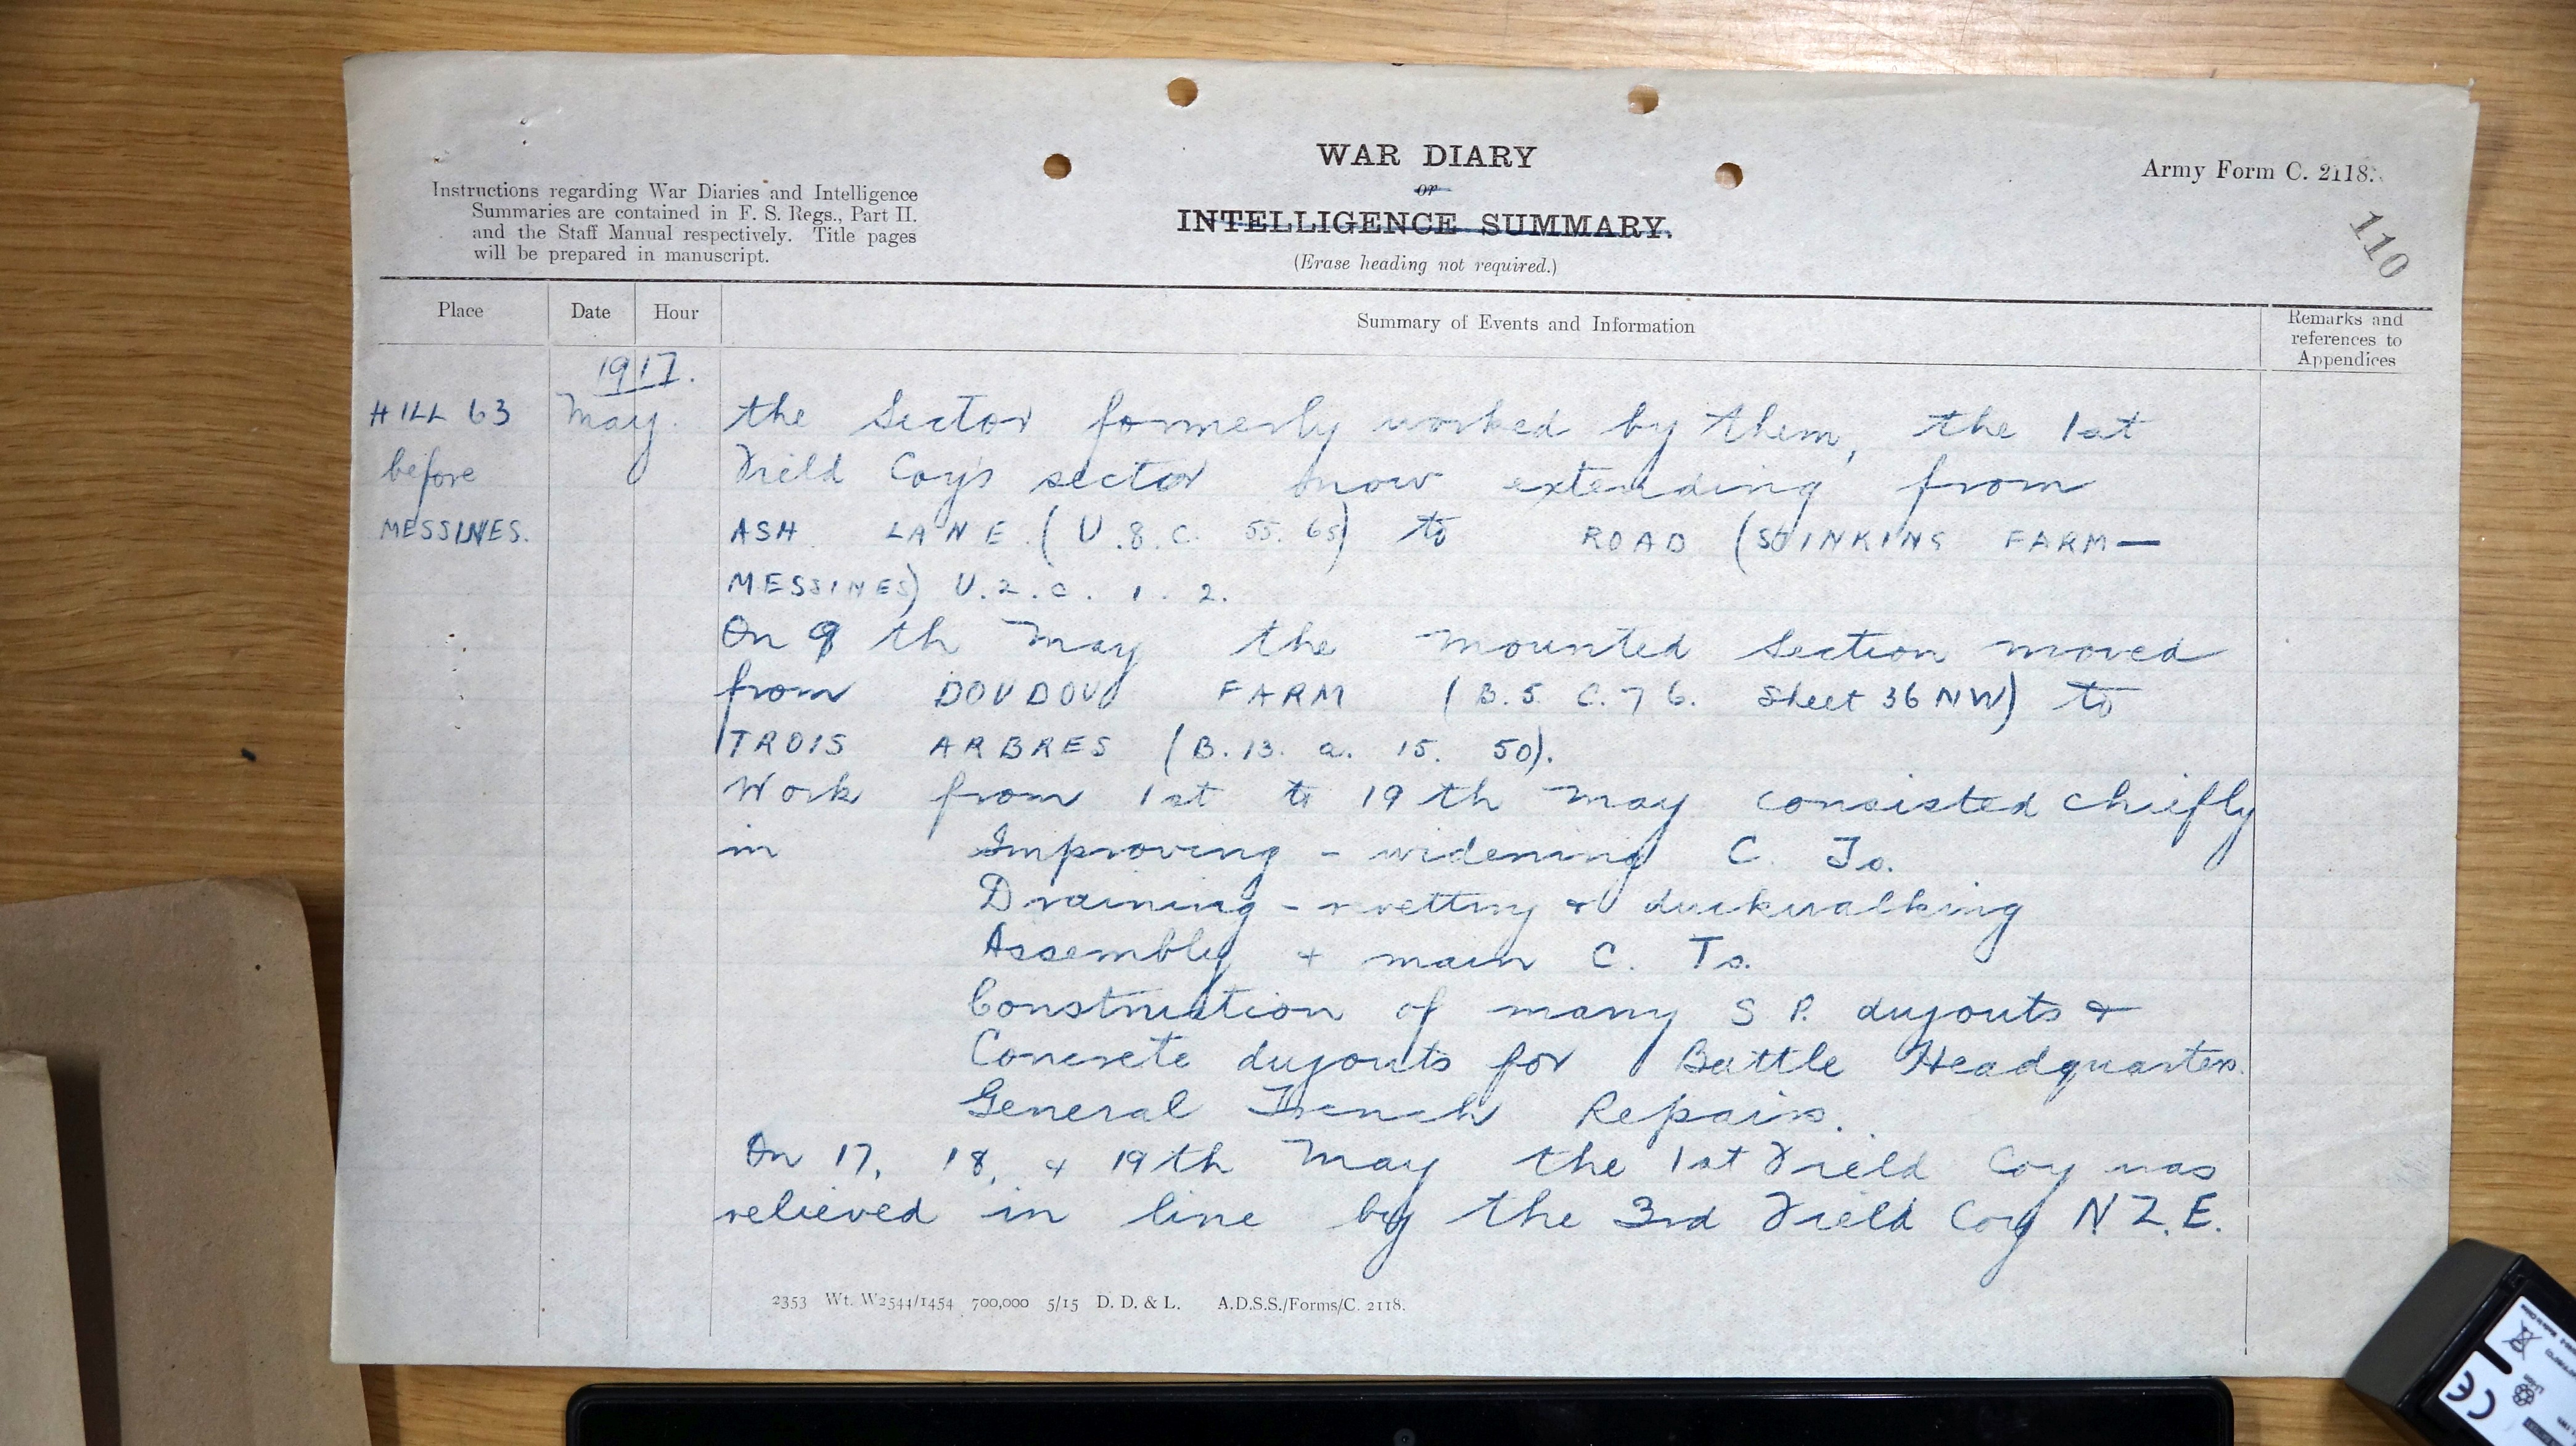 WAR DIARY
or
INTELLIGENCE SUMMARY.
(Erase heading not required.)
Army Form C. 2118.
110
Instructions regarding War Diaries and Intelligence
Summaries are contained in F. S. Regs., Part II.
and the Staff Manual respectively. Title pages
will be prepared in manuscript.
Place Date Hour Summary of Events and Information Remarks and
references to
Appendices
1917.
HILL 63 May. the Sector formerly worked by them, the 1st
before Field Coy's sector now extending from
MESSINES. ASH LANE (U.8.C. 55. 65) to ROAD (STINKING FARM—
MESSINES) U.2.c. 1. 2.
On 9th May the mounted Section moved
from DOUDOU FARM (B.5 C.7 6. Sheet 36 NW) to
TROIS ARBRES (B.13. a. 15. 50).
Work from 1st to 19th May consisted chiefly
in Improving - widening C. Ts.
Draining - revetting & duckwalking
Assembly + main C. Ts.
Construction of many S P. dugouts &
Concrete dugouts for Battle Headquarters.
General Trench Repairs.
On 17, 18, & 19th May the 1st Field Coy was
relieved in line by the 3rd Field Coy N Z. E.
2353 Wt. W2544/1454 700,000 5/15 D. D. & L. A.D.S.S./Forms/C. 2118.
CE